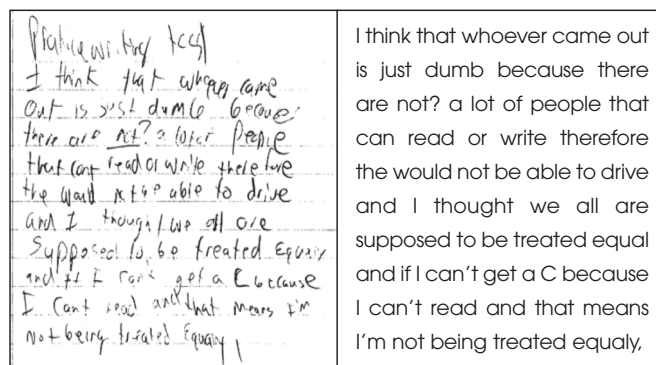 Pratice writing test
I think that whoever came
out is just dumb because
there are not? a lot of people
that cant read or write therefore
the would not be able to drive
and I thought we all are
supposed to be treated Equaly
and if I cant get a C because
I cant read and that means I'm
not being treated Equaly,
I think that whoever came out
is just dumb because there
are not? a lot of people that
can read or write therefore
the would not be able to drive
and I thought we all are
supposed to be treated equal
and if I can't get a C because
I can't read and that means
I'm not being treated equaly,